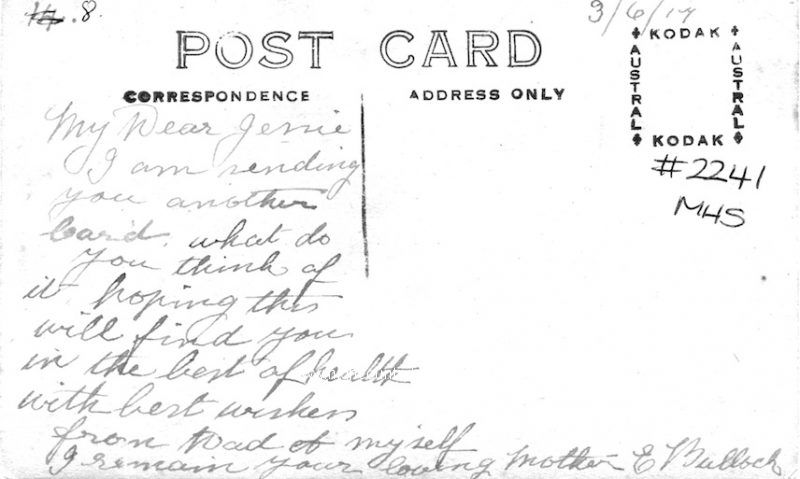 14. .8.
3/6/17
POST CARD
CORRESPONDENCE
ADDRESS ONLY
KODAK
AUSTRAL
AUSTRAL
KODAK
#2241
MHS
My Dear Jessie
I am sending
you another
Card. what do
you think of
it hoping this
will find you
in the best of health
with best wishes
from Dad & myself
I remain your loving Mother E Bullock